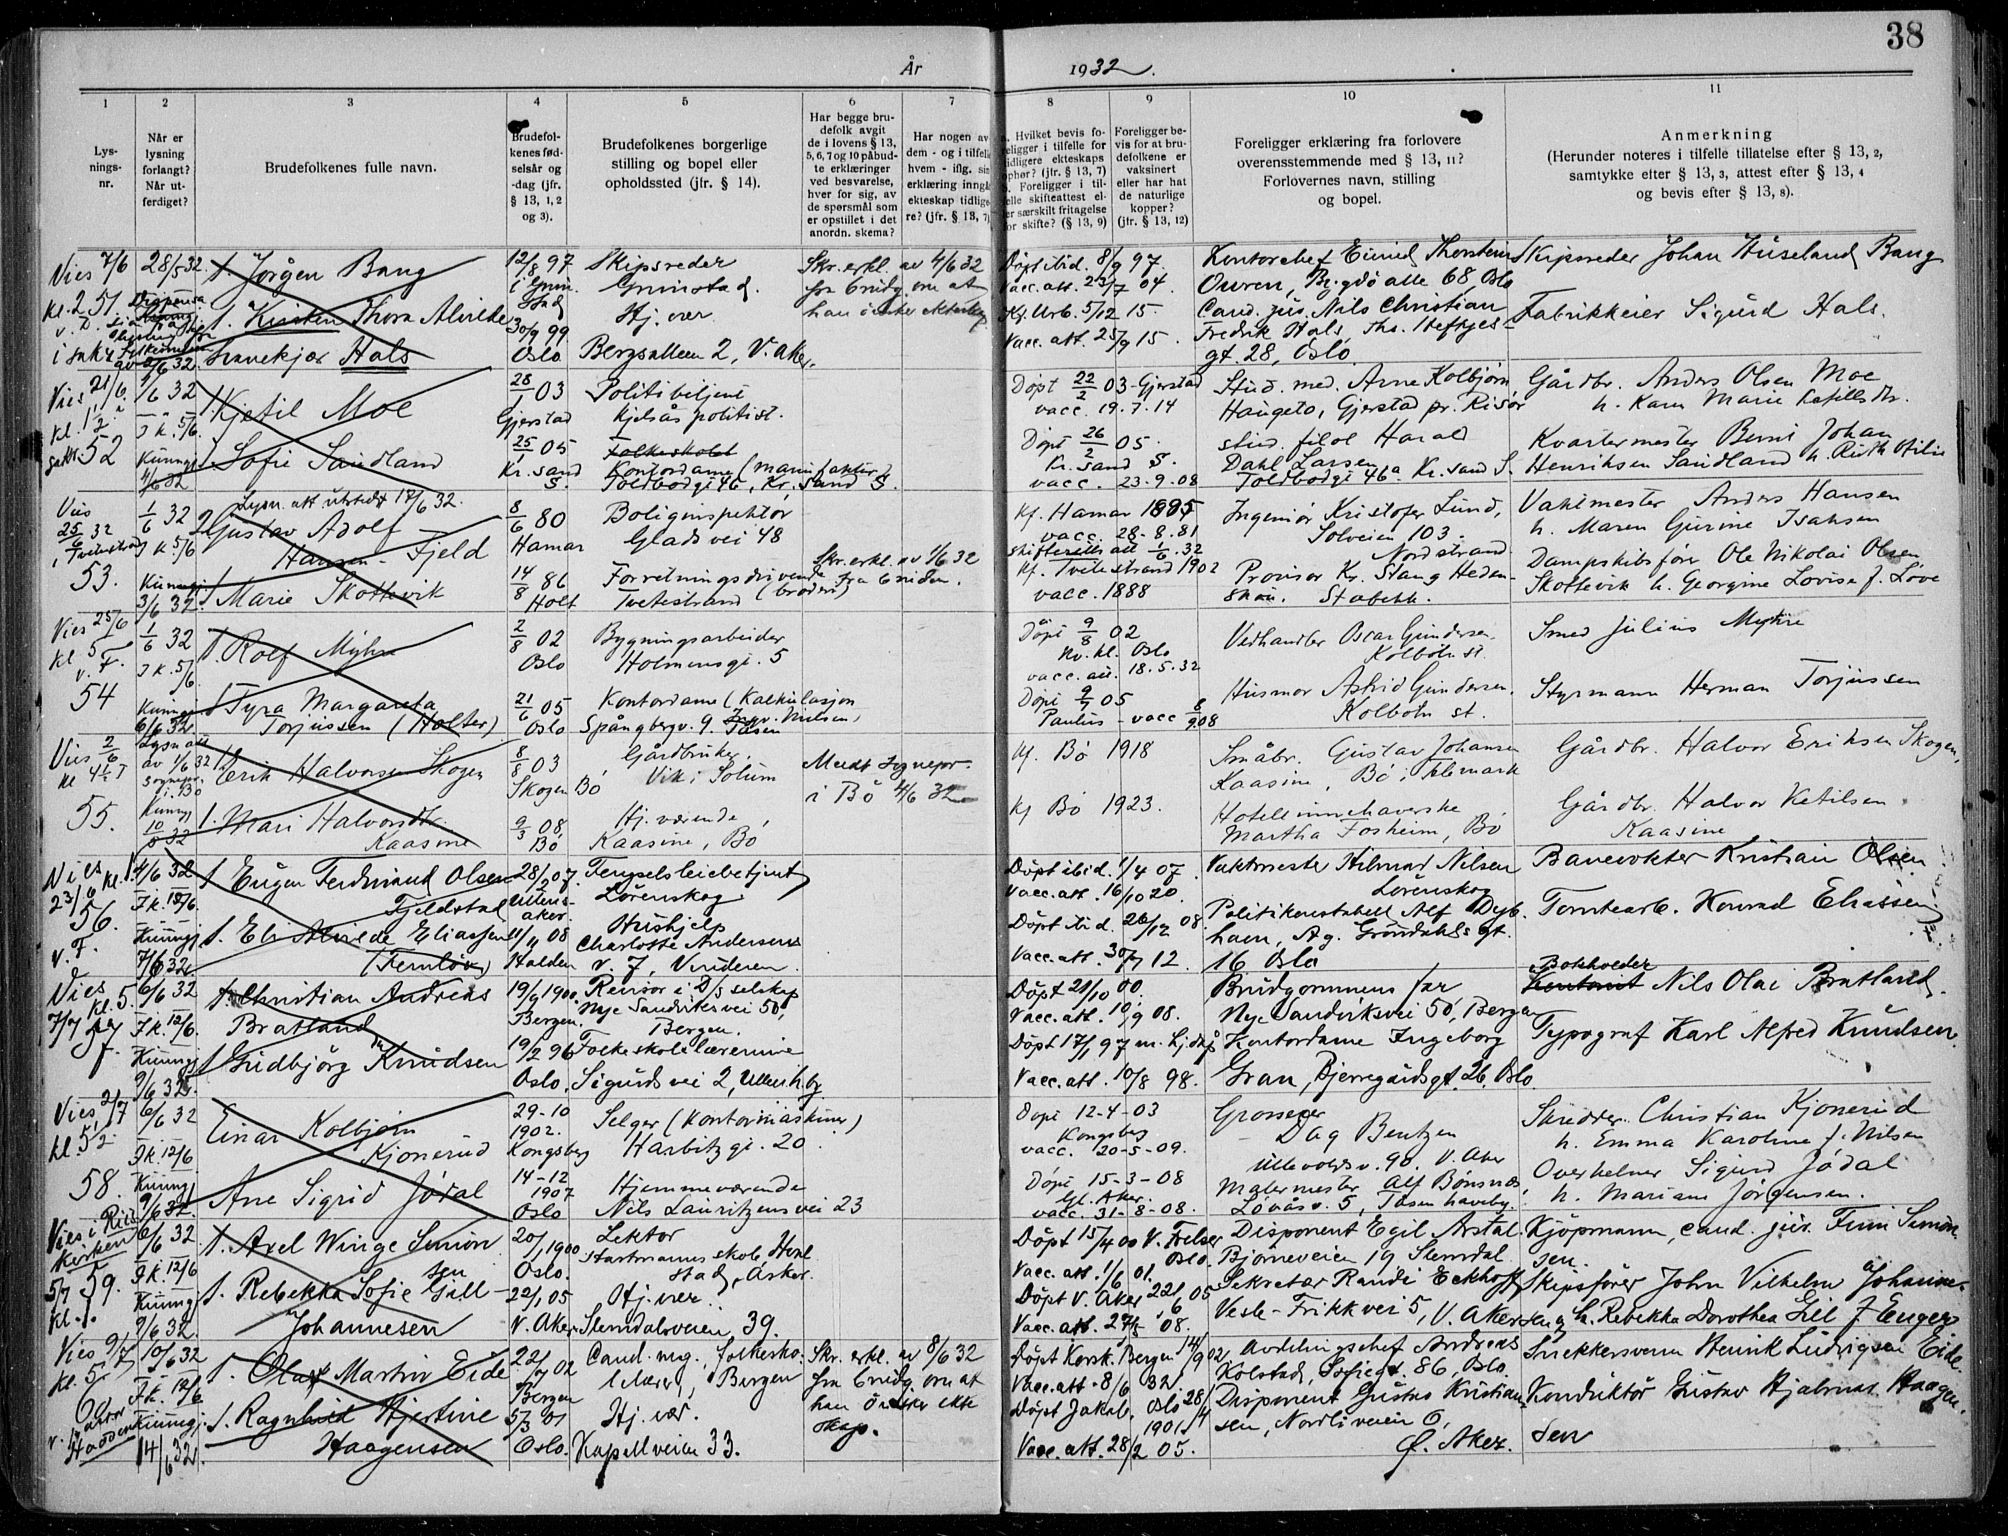 38
År 1932.
1
2
3
4
5
6
7
8
9
10
11
Lys-
nings-
nr.
Når er
lysning
forlangt?
Når ut-
ferdiget?
Brudefolkenes fulle navn.
Brudefol-
kenes fød-
selsår og
-dag (jfr.
§ 13, 1, 2
og 3).
Brudefolkenes borgerlige
stilling og bopel eller
opholdssted (jfr. § 14).
Har begge bru-
defolk avgit
de i lovens § 13,
5, 6, 7 og 10 påbud-
te erklæringer
ved besvarelse,
hver for sig, av
de spørsmål som
er opstillet i det
anordn. skema?
Har nogen av
dem - og i tilfelle
hvem - iflg. sin
erklæring inngått
ekteskap tidlige-
re? (jfr. § 13, 7)
Hvilket bevis fo-
religger i tilfelle for
tidligere ekteskaps
ophør? (jfr. § 13, 7)
Foreligger i til-
felle skifteattest el-
ler særskilt fritagelse
for skifte? (§ 13, 9)
Foreligger be-
vis for at bru-
defolkene er
vaksinert
eller har hat
de naturlige
kopper?
(jfr. § 13, 12)
Foreligger erklæring fra forlovere
overensstemmende med § 13, 11?
Forlovernes navn, stilling
og bopel.
Anmerkning
(Herunder noteres i tilfelle tillatelse efter § 13, 2,
samtykke efter § 13, 3, attest efter § 13, 4
og bevis efter § 13, 8).
Vies 7/6
kl. 2 51
28/5 32
1. Jørgen Bang
1. Kirsten Thora Alvilde
Svanekjær Hals
12/8 97
Grimstad
30/9 99
Oslo
Skipsreder
Grimstad.
Hj. vær
Bergsalleen 2, V. Aker.
Skr. erkl. av 4/6 32
fra brudg. om at
han ønsker ekteskap
Døpt ibid. 8/9 97.
Vacc. att. 23/7 04.
Kf. Urb. 5/12 15.
Vacc. att. 25/9 15.
Kontorchef Eivind Thorstein
Owren, Bygdø alle 68, Oslo
Cand. jus. Nils Christian
Fredrik Hals, Ths. Heftyes-
gt. 28, Oslo
Skipsreder Johan Huseland Bang
Fabrikkeier Sigurd Hals.
Vies 21/6
52
1/6 32
J k. 5/6
Kunngj.
4/6 32
1. Kjetil Moe
1. Sofie Sandland
28/1 03
Gjerstad
25/1 05
Kr. sand
S.
Politibetjent
Kjelsås politist.
Folkeskolel
Kontordame (manufaktur)
Toldbodgt 46, Kr. sand S.
Døpt 22/2 03 - Gjerstad
vacc. 19.7.14
Døpt 26/2 05.
Kr. sand S.
vacc. 23.9.08
Stud. med. Arne Kolbjørn
Haugeto, Gjerstad pr. Risør
stud. filol Harald
Dahl Larsen
Toldbodgt 46a Kr. sand S.
Gårdbr. Anders Olsen Moe
h. Karen Marie Ketilsdtr.
Kvartermester Bernt Johan
Henriksen Sandland h. Ruth Otilie
Vies
25/6 32
i Tvedestrand
53.
1/6 32
J k. 5/6
Kunngj.
3/6 32
Lysn. att utstedt 17/6 32.
2 Gustav Adolf
Hansen - Fjeld
1 Marie Skottevik
8/6 80
Hamar
14/8 86
Holt
Boliginspektør
Gladsvei 48
Forretningsdrivende
Tvedestrand (broderi)
Skr. erkl. av 1/6 32
fra bruden.
Kf. Hamar 1895
vacc. 28-8.81
Skifteretts att 1/6.32
Kf. Tvedestrand 1902
vacc. 1888
Ingeniør Kristofer Lund,
Solveien 103.
Nordstrand.
Provisor Kr. Stang Heden-
Stabekk.
Vaktmester Anders Hansen
h. Maren Gurine Isaksen
Dampskibsfører Ole Nikolai Olsen
Skottevik h. Georgine Lovise f. Løve
Vies 25/6
kl 5
v. F.
54
1/6 32
J k. 5/6
Kunngj.
6/6 32
1. Rolf Myhre
1 Tyra Margareta
Torjussen (Holter)
2/8 02
Oslo
21/6 05
Oslo
Bygningsarbeider
Holmensgt. 5
Kontordame (Kalkulasjon
Spångbergv. 9
Døpt 9/8 02
Oslo
vacc. att. 18.5.32
Døpt 9/7 05
Paulus - vacc 8/9 08
Vedhandler Oscar Gundersen
Kolbotn st.
Husmor Astrid Gundersen.
Kolbotn st.
Smed Julius Myhre
Styrmann Herman Torjussen
Vies 2/6
55.
Lysn att
av 1/6 32
sognepr.
i Bø
Kunngj
1. Erik Halvorsen Skogen
1. Mari Halvorsdtr.
Kaasine
8/8 03
Skogen Bø
9/3 08
Bø
Gårdbruker
Vik i Solum
Hj. værende,
Kaasine, Bø
Meldt sognepr.
i Bø 4/6 32
Kf. Bø 1918
Kf Bø 1923.
Småbr. Gustav Johansen
Kaasine, Bø i Telemark
Hotellinnehaverske
Martha Fosheim, Bø
Gårdbr. Halvor Eriksen Skogen,
Gårdbr. Halvor Ketilsen
Kaasine
Vies
23/6 kl. 1.
56.
v. F.
4/6 32
J k. 12/6
Kunngj.
7/6 32
1 Eugen Ferdinand Olsen
Fjeldstad
1. Eli Alvilde Eliassen
(Fernlöv)
28/2 07.
Ullens-
aker
11/11 08
Halden
Fengselsleiebetjent
Lørenskog
Hushjelp
Charlotte Andersens
v. 7, Vinderen
Døpt ibid. 1/4 07
Vacc. att. 16/10 20.
Døpt ibid. 26/12 08
Vacc. att. 30/7 12.
Vaktmester Hilmar Nilsen
Lørenskog
Politikonstabel Alf Dyb-
ham, Ag. Grøndahls gt.
16 Oslo
Banevokter Kristian Olsen.
Tomtearb. Konrad Eliassen
Vies
7/7 kl. 5.
57
6/6 32
J k. 12/6
Kunngj
9/6 32
1. Christian Andreas
Bratland
1 Gudbjørg Knudsen
19/9 1900
Bergen.
19/2 96
Oslo
Revisor i D/S selskap
Nye Sandviksvei 50,
Bergen.
Folkeskolelærerinne
Sigurds vei 2, Ullevål hby
Døpt 21/10 00.
Vacc. att. 10/9 08.
Døpt 17/1 97 m. hj. dåp
Vacc. att. 10/8 98.
Brudgommens far
Nye Sandviksvei 50, Bergen
Kontordame Ingeborg
Gran, Bjerregårdsgt. 26, Oslo
Bokholder
Nils Olai Bratland.
Typograf Karl Alfred Knudsen.
Vies 2/7
58.
6/6 32
J k. 12/6
Kunngj
9/6 32.
Einar Kolbjørn
Kjonerud
Ane Sigrid Jødal
29-10
1902.
Kongsberg
14-12
1907
Oslo
Selger (Kontormaskiner)
Harbitzgt. 20
Hjemmeværende
Nils Lauritzens vei 23
Døpt 12-4-03
Kongsberg
vacc. 20-5-09.
Døpt 15-3-08
Gl. Aker.
vacc. 31-8-08.
Grosserer
Dag Bentzen
Ullevoldsv. 90. V. Aker
Malermester Alf Bonsnæs
Løvåsv. 5, Tåsen haveby.
Skredder Christian Kjonerud
h. Emma Karoline f. Nilsen
Overkelner Sigurd Jødal
h. Mariane Jørgensen.
Vies i Ris
kirken
5/7 59.
kl. 1.
6/6 32
J k. 12/6
Kunngj
9/6 32.
1. Axel Winge Simon-
sen
1. Rebekka Sofie Gill-
Johannesen
20/1 1900
Oslo.
22/1 05
V. Aker
Lektor
Hartmanns skole Hval
stad, Asker.
Hj. vær.
Slemdalsveien 39.
Døpt 15/4 00 V. Frelser
Oslo.
Vacc. att. 1/6 01.
Døpt V. Aker 22/6 05
Vacc. att. 27/5 08.
Disponent Egil Arstal
Bjørneveien 19 Slemdal
Sekretær Randi Eckhoff
Vesle-Frikk vei 5, V. Aker
Kjøpmann, cand. jur. Finn Simon-
sen.
Skipsfører John Vilhelm Johanne-
sen og h. Rebekka Dorothea Gill f. Enger
Vies 9/7
kl. 5.
60.
10/6 32
J k. 12/6
Kunngj.
14/6 32.
1. Olaf Martin Eide
1. Ragnhild Hjertine
Haagensen
22/7 02
Bergen
5/3 01
Oslo.
Cand. mag., folkesko-
lelærer, Bergen
Hj. vær.
Kapellveien 33.
Skr. erkl. av 8/6 32
fra brudg. om at
han ønsker ekte
skap.
Døpt Korsk. Bergen 14/9 02
Vacc. att. 8/6 32.
Døpt Jakob, Oslo 28/4
1901
Vacc. att. 28/2 05.
Avdelingschef Andreas
Kolstad, Sofiegt. 86, Oslo
Disponent Gustav Kristian-
sen, Nordliveien 6,
Ø. Aker.
Snekkersvenn Henrik Ludvigsen Eide.
Konduktør Gustav Hjalmar Haagen-
sen